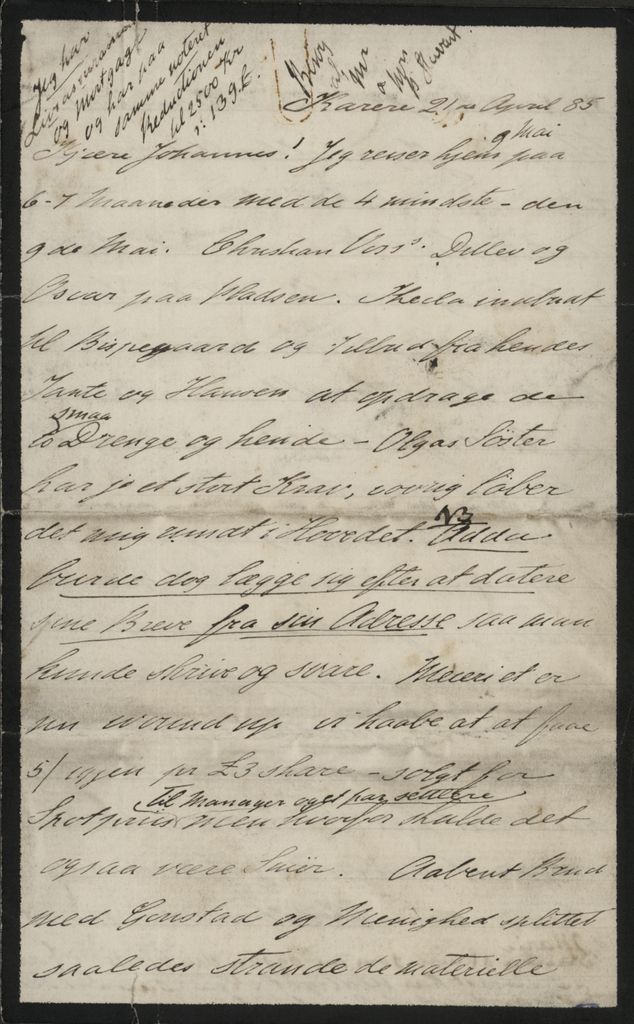 Jeg har
Livsassurance
og Mortgage
og har paa
samme noteret
Reductionen
til 2500 Kr
: 139£.
Brev
af
Mr
&
Mrs
Karere 21de April 85
Kjære Johannes! Jeg reiser hjem 9 Mai paa
6-7 Maaneder med de 4 mindste - den
9de Mai. Christian Ditlev og
Oscar paa Pladsen. Thecla indbudt
til Bispegaard og Tilbud fra hendes
Tante og Hansen at opdrage de
to smaa Drenge og hende - Olgas Söster
har jo et stort Krav, iovrig löber
det mig rundt i Hovedet. NB Adda
burde dog lægge sig efter at datere
sine Breve fra sin Adresse saa man
kunde skrive og svare. Meieriet er
nu wound up vi haabe at at faae
5/ igjen pr £3 share - solgt for
Spotpriis til Manager og et par settlere men hvorfor skulde det
ogsaa være Aabent Brud
med Gonstad og Menighed splittet
saaledes strande de materielle